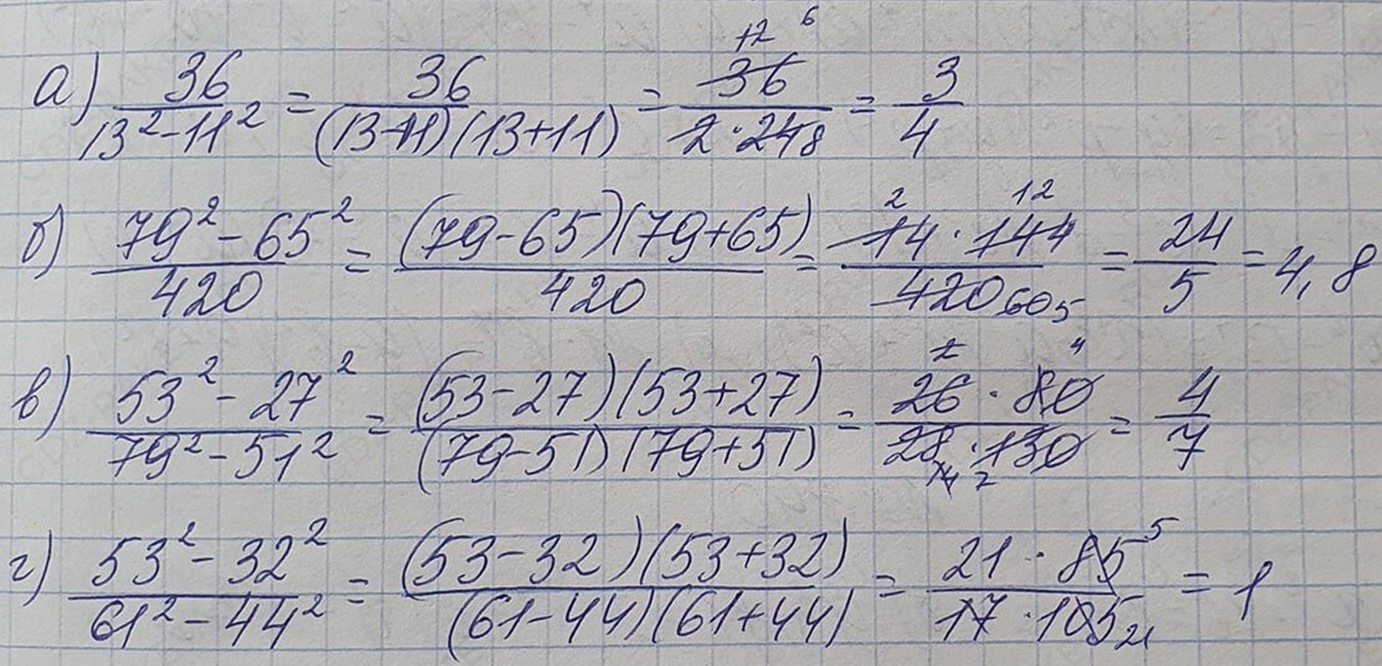 а) 36/(13²-11²) = 36/((13-11)(13+11)) = 36/(2·24) = 3/4
б) (79²-65²)/420 = ((79-65)(79+65))/420 = (14·144)/420 = 24/5 = 4,8
в) (53²-27²)/(79²-51²) = ((53-27)(53+27))/((79-51)(79+51)) = (26·80)/(28·130) = 4/7
г) (53²-32²)/(61²-44²) = ((53-32)(53+32))/((61-44)(61+44)) = (21·85)/(17·105) = 1